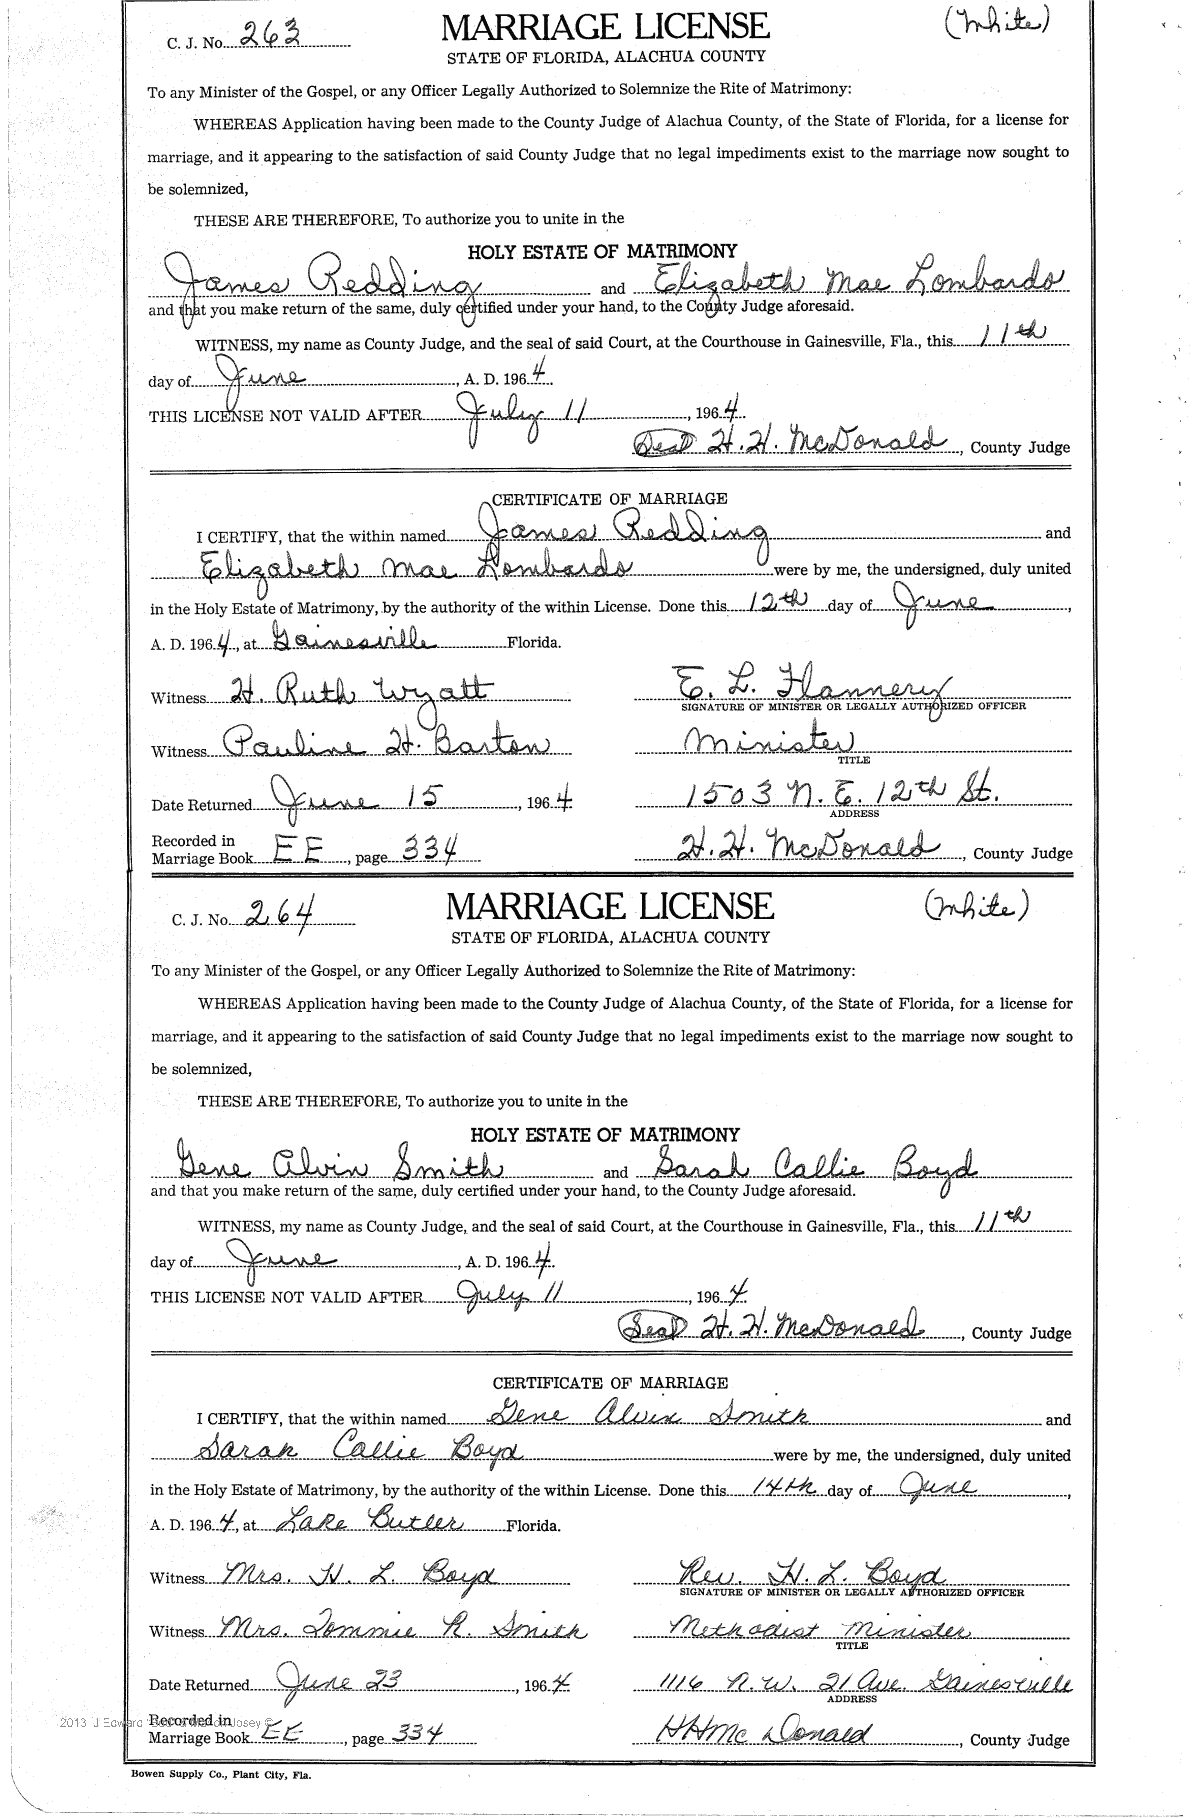 C. J. No. 263 MARRIAGE LICENSE (White)
STATE OF FLORIDA, ALACHUA COUNTY
To any Minister of the Gospel, or any Officer Legally Authorized to Solemnize the Rite of Matrimony:
WHEREAS Application having been made to the County Judge of Alachua County, of the State of Florida, for a license for
marriage, and it appearing to the satisfaction of said County Judge that no legal impediments exist to the marriage now sought to
be solemnized,
THESE ARE THEREFORE, To authorize you to unite in the
HOLY ESTATE OF MATRIMONY
James Redding and Elizabeth Mae Lombardo
and that you make return of the same, duly certified under your hand, to the County Judge aforesaid.
WITNESS, my name as County Judge, and the seal of said Court, at the Courthouse in Gainesville, Fla., this 11th
day of June, A. D. 1964
THIS LICENSE NOT VALID AFTER July 11, 1964
Seal H. H. McDonald, County Judge
CERTIFICATE OF MARRIAGE
I CERTIFY, that the within named James Redding and
Elizabeth Mae Lombardo were by me, the undersigned, duly united
in the Holy Estate of Matrimony, by the authority of the within License. Done this 12th day of June,
A. D. 1964, at Gainesville Florida.
Witness H. Ruth Wyatt E. L. Flannery
SIGNATURE OF MINISTER OR LEGALLY AUTHORIZED OFFICER
Witness Pauline H. Barton Minister
TITLE
Date Returned June 15, 1964 1503 N. E. 12th St.
ADDRESS
Recorded in
Marriage Book EE, page 334 H. H. McDonald, County Judge
C. J. No. 264 MARRIAGE LICENSE (White)
STATE OF FLORIDA, ALACHUA COUNTY
To any Minister of the Gospel, or any Officer Legally Authorized to Solemnize the Rite of Matrimony:
WHEREAS Application having been made to the County Judge of Alachua County, of the State of Florida, for a license for
marriage, and it appearing to the satisfaction of said County Judge that no legal impediments exist to the marriage now sought to
be solemnized,
THESE ARE THEREFORE, To authorize you to unite in the
HOLY ESTATE OF MATRIMONY
Gene Alvin Smith and Sarah Callie Boyd
and that you make return of the same, duly certified under your hand, to the County Judge aforesaid.
WITNESS, my name as County Judge, and the seal of said Court, at the Courthouse in Gainesville, Fla., this 11th
day of June, A. D. 1964.
THIS LICENSE NOT VALID AFTER July 11, 1964
Seal H. H. McDonald, County Judge
CERTIFICATE OF MARRIAGE
I CERTIFY, that the within named Gene Alvin Smith and
Sarah Callie Boyd were by me, the undersigned, duly united
in the Holy Estate of Matrimony, by the authority of the within License. Done this 14th day of June,
A. D. 1964, at Lake Butler Florida.
Witness Mrs. H. L. Boyd Rev. H. L. Boyd
SIGNATURE OF MINISTER OR LEGALLY AUTHORIZED OFFICER
Witness Mrs. Tommie R. Smith Methodist Minister
TITLE
Date Returned June 23, 1964 1116 N. W. 21 Ave. Gainesville
ADDRESS
2013 J Edward Josey ©
Recorded in
Marriage Book EE, page 334 HH Mc Donald, County Judge
Bowen Supply Co., Plant City, Fla.